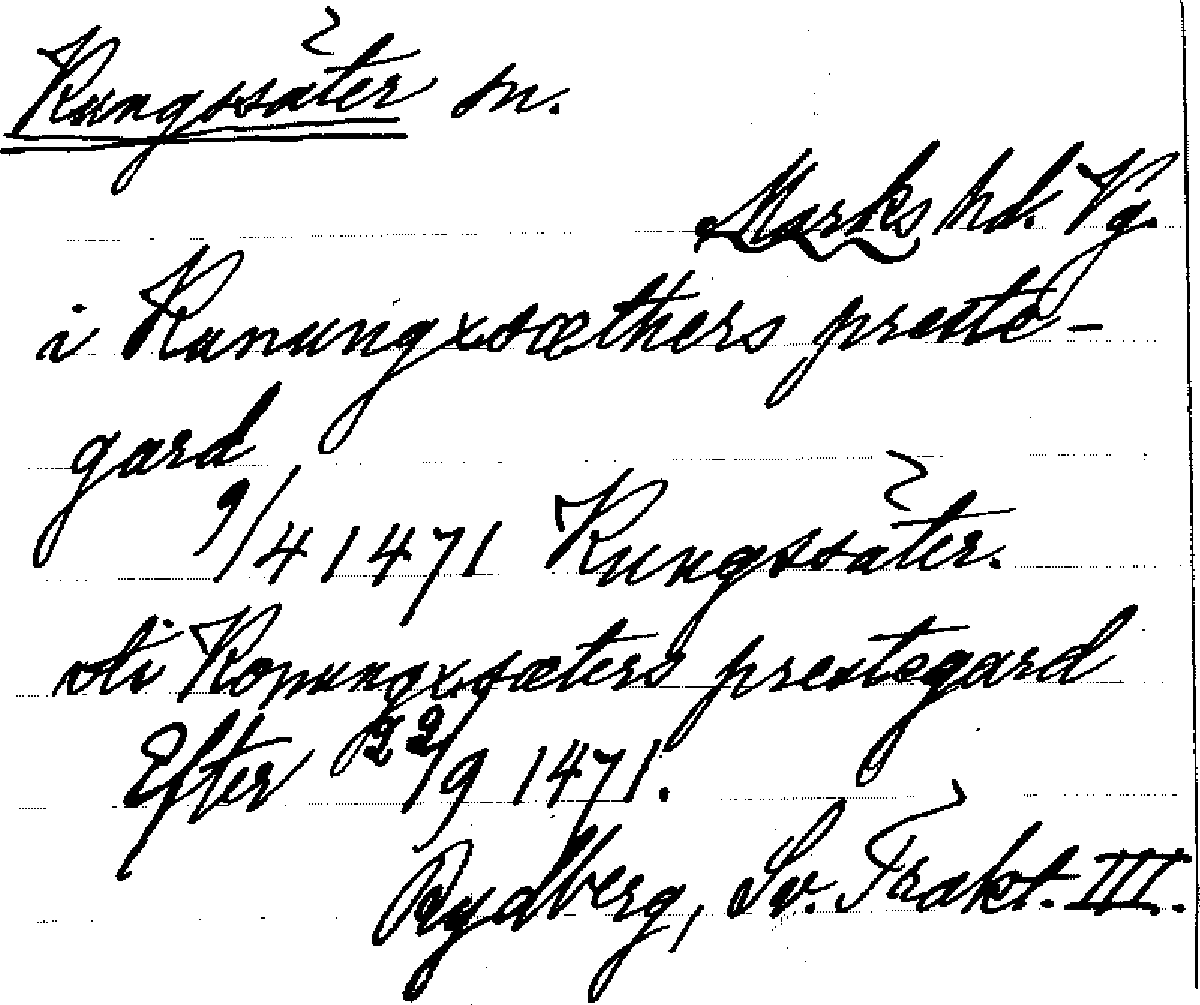 Kungssäter sn.
Marks hd. Vg.
i Kunungxsæthers preste-
gard
9/4 1471 Kungssäter.
uti Konungxsæters prestegard
Efter 22/9 1471.
Rydberg, Sv. Trakt. III.